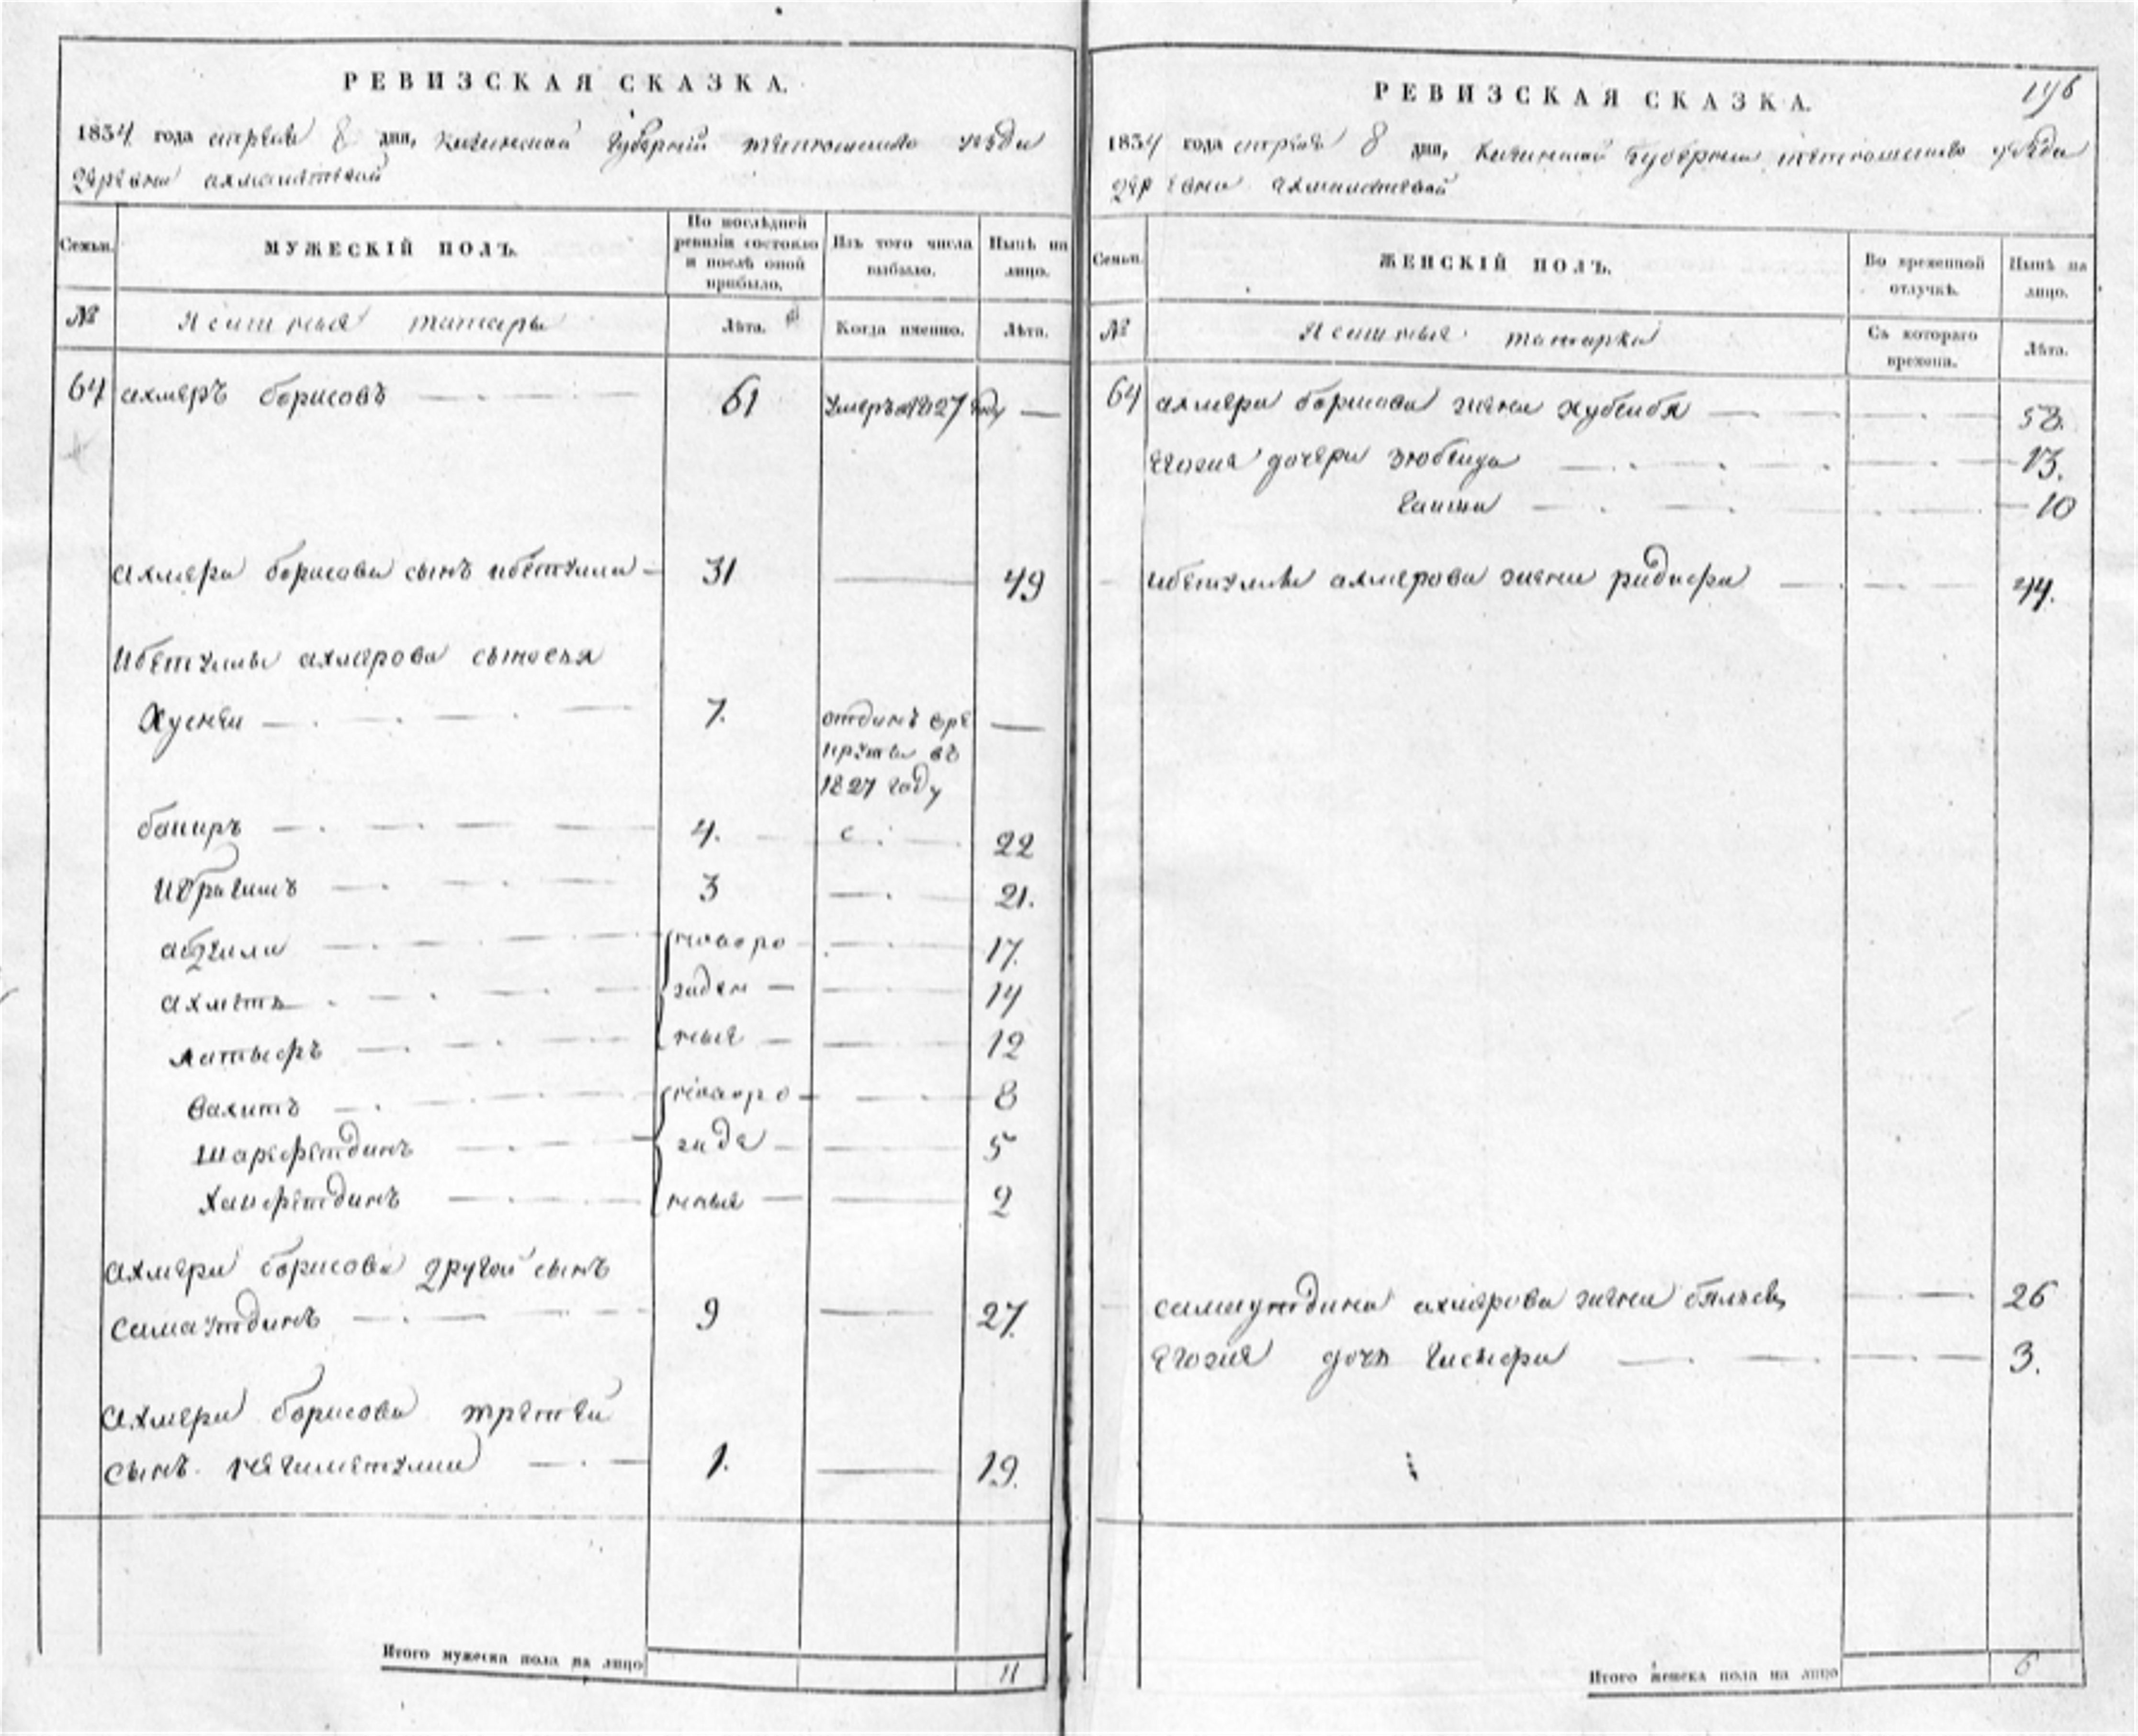 РЕВИЗСКАЯ СКАЗКА.
1834 года апреля 8 дня, казанской губернии тетюшскаго уезда
деревни ахмаметевой
Семьи.
МУЖЕСКІЙ ПОЛЪ.
По послѣдней ревизіи состояло и послѣ оной прибыло.
Изъ того числа выбыло.
Нынѣ на лицо.
№
Ясашныя татары
Лѣта.
Когда именно.
Лѣта.
64 ахмеръ борисовъ 61 умеръ 1827 году
ахмера борисова сынъ ибетулла 31 49
Ибетуллы ахмерова сыновья
Хусней 7. отданъ въ рекруты въ 1827 году
бакиръ 4. 22
Ибрагимъ 3 21.
абдулла новорожденныя 17.
ахметъ 14
латыфъ 12
вахитъ новорожденныя 8
шарефетдинъ 5
Хайфетдинъ 2
ахмера борисова другой сынъ
самаутдинъ 9 27.
ахмера борисова третей
сынъ негаметулла 1. 19.
Итого мужеска пола на лицо 11
196
РЕВИЗСКАЯ СКАЗКА.
1834 года апреля 8 дня, казанской губернии тетюшскаго уезда
деревни
Семьи.
ЖЕНСКІЙ ПОЛЪ.
Во временной отлучкѣ.
Нынѣ на лицо.
№
Ясашныя татарки
Съ котораго времени.
Лѣта.
64 ахмера борисова жена хубейбя 58.
егожа дочери зюбейда 13.
гайша 10
ибетуллы ахмерова жена радифа 44.
самаутдина ахмерова жена 26
егожа дочь 3.
Итого женска пола на лицо 6